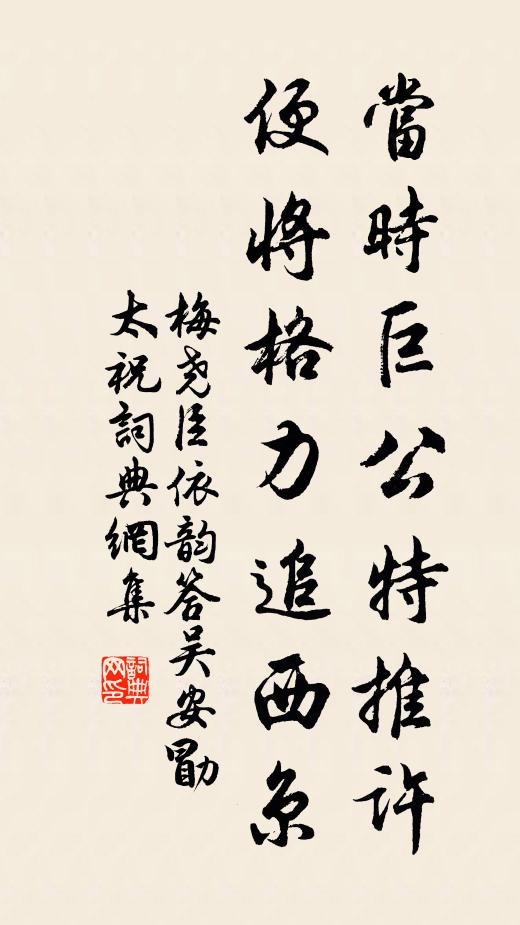 當時巨公特推許
便將格力追西京
梅尧臣依韵答吴安勖
太祝詞典網集
詞典网印